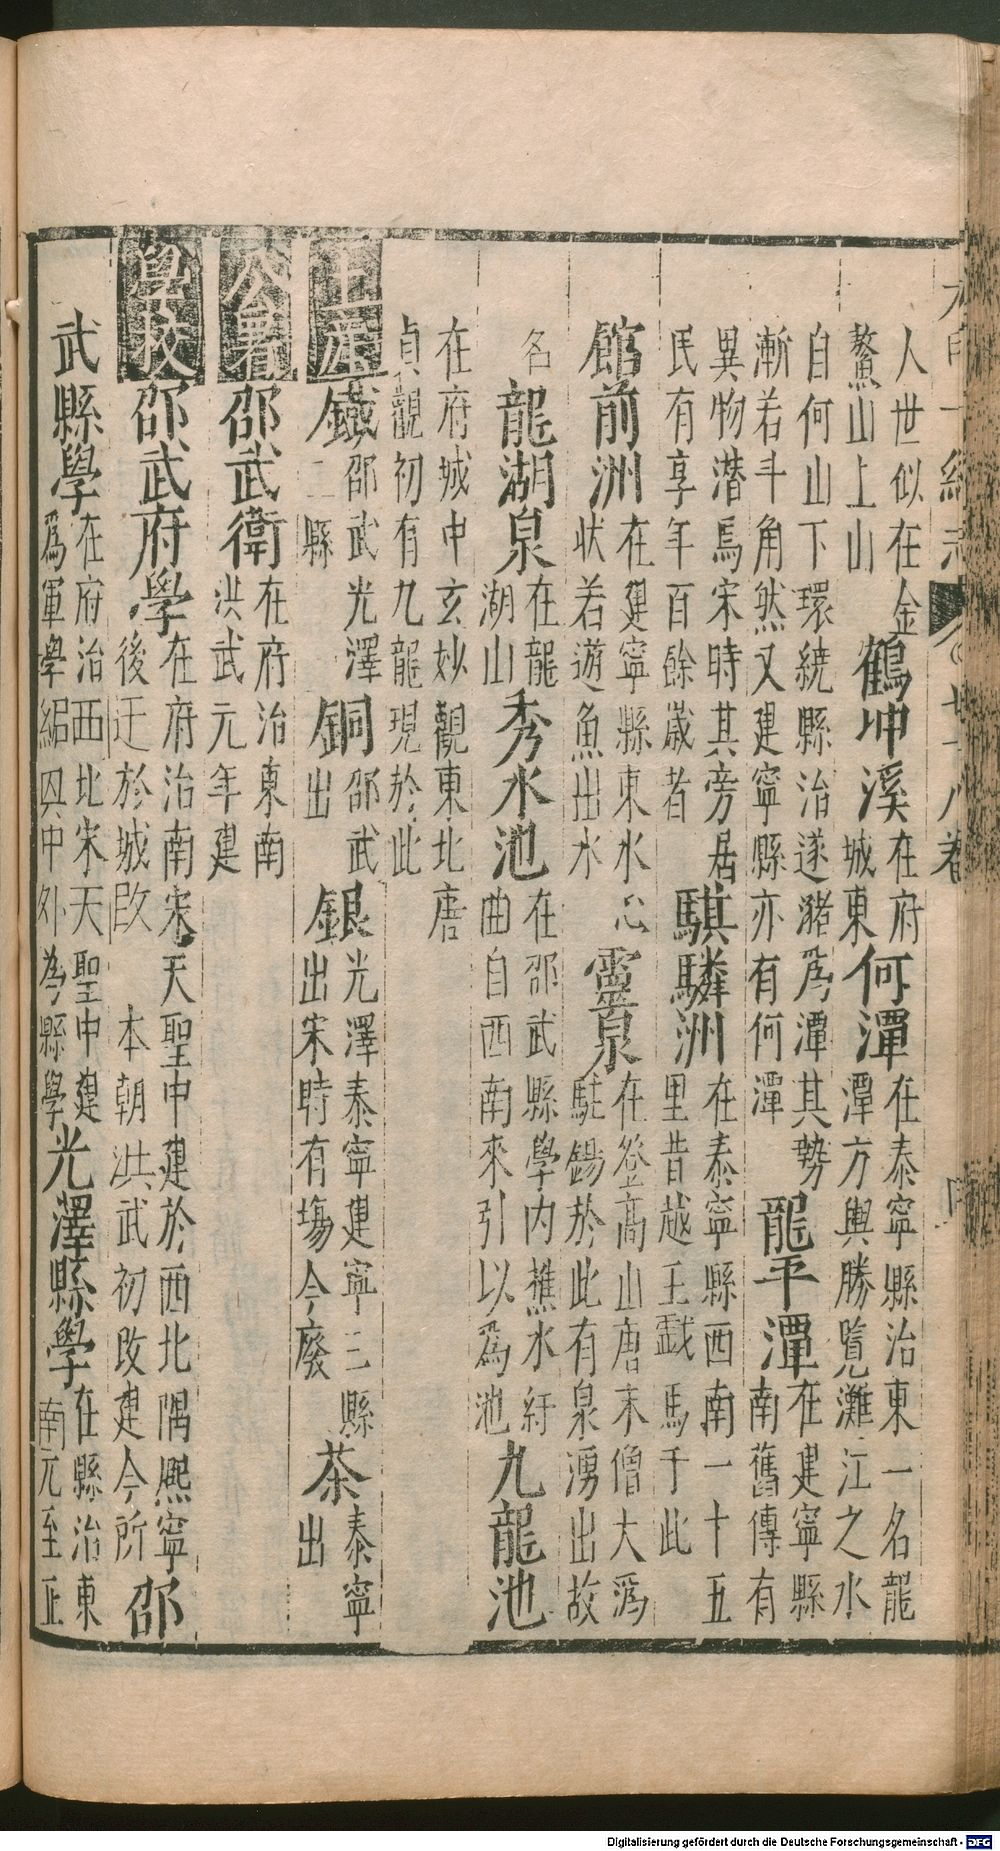 大明一統志 七十八卷
人世似在金
鰲山上山
鶴坤溪
在府
城東
何潭
在泰寧縣治東一名龍
潭方輿勝覽灘江之水
自何山下環繞縣治遂瀦為潭其勢
漸若斗角然又建寧縣亦有何潭
龍平潭
在建寧縣
南舊傳有
異物潜焉宋時其旁居
民有享年百餘歲者
騏驎洲
在泰寧縣西南一十五
里昔越王戯馬于此
館前洲
在建寧縣東水心
状若遊魚出水
靈泉
在登高山唐末僧大為
駐錫於此有泉湧出故
名
龍湖泉
在龍
湖山
秀水池
在邵武縣學内樵水紆
曲自西南來引以為池
九龍池
在府城中玄妙觀東北唐
貞觀初有九龍現於此
土産
鐵
邵武光澤
二縣
銅
邵武
出
銀
光澤泰寧建寧三縣
出宋時有塲今廢
茶
泰寧
出
公署
邵武衛
在府治東南
洪武元年建
學校
邵武府學
在府治南宋天聖中建於西北隅熈寧
後迁於城
本朝洪武初改建今所
邵
武縣學
在府治西北宋天聖中建
為軍學
中
為縣學
光澤縣學
在縣治東
南元至正
Digitalisierung gefördert durch die Deutsche Forschungsgemeinschaft - DFG